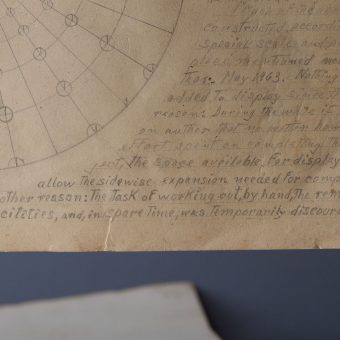 constructed, accordin
special scale, and p
ulous, mentioned mo
Thor. May 1963. Nothing
added to display since
reason: During the wait is
on author that no matter how
effort spent on completing th
ect, the space available for display
allow the sidewise expansion needed for comp
other reason: The task of working out, by hand, the rem
acilities, and, in spare time, was temporarily discour